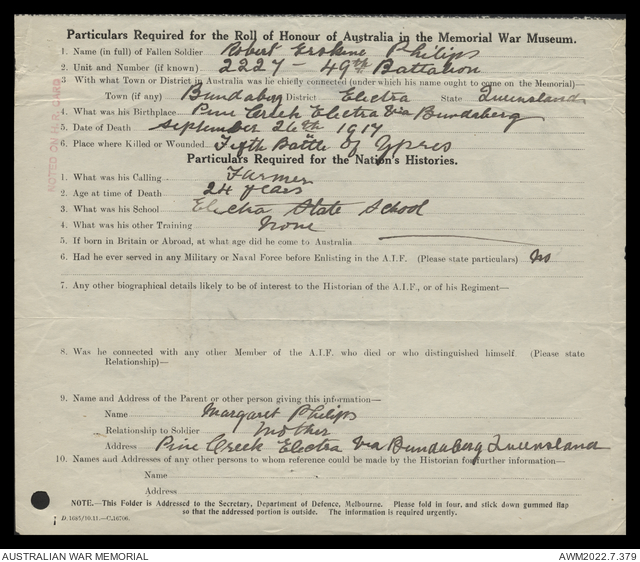 Particulars Required for the Roll of Honour of Australia in the Memorial War Museum.
1. Name (in full) of Fallen Soldier Robert Erskine Philips
2. Unit and Number (if known) 2227 - 49th Battalion
3 With what Town or District in Australia was he chiefly connected (under which his name ought to come on the Memorial)—
Town (if any) Bundaberg District Electra State Queensland
4. What was his Birthplace Pine Creek Electra via Bundaberg
5. Date of Death September 26th 1917
6. Place where Killed or Wounded Fifth Battle of Ypres
Particulars Required for the Nation's Histories.
1. What was his Calling Farmer
2. Age at time of Death 24 years
3. What was his School Electra State School
4. What was his other Training None
5. If born in Britain or Abroad, at what age did he come to Australia
6. Had he ever served in any Military or Naval Force before Enlisting in the A.I.F. (Please state particulars) No
7. Any other biographical details likely to be of interest to the Historian of the A.I.F., or of his Regiment—
8. Was he connected with any other Member of the A.I.F. who died or who distinguished himself (Please state
Relationship)—
9. Name and Address of the Parent or other person giving this information—
Name Margaret Philips
Relationship to Soldier Mother
Address Pine Creek Electra Via Bundaberg Queensland
10. Names and Addresses of any other persons to whom reference could be made by the Historian for further information—
Name
Address
NOTE.—This Folder is Addressed to the Secretary, Department of Defence, Melbourne. Please fold in four, and stick down gummed flap
so that the addressed portion is outside. The information is required urgently.
D.1685/10.11.—C.16706.
NOTED ON H.R. CARD
AUSTRALIAN WAR MEMORIAL
AWM2022.7.379